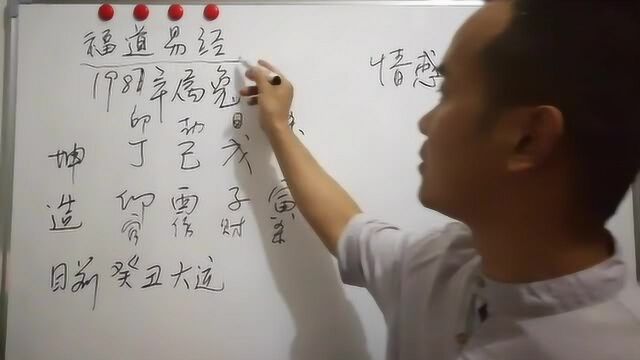 福道易经
情感
1987年属兔
印 劫 日
坤 丁 己 戊
造 卯 酉 子 寅
官 伤 财 杀
目前 癸丑大运